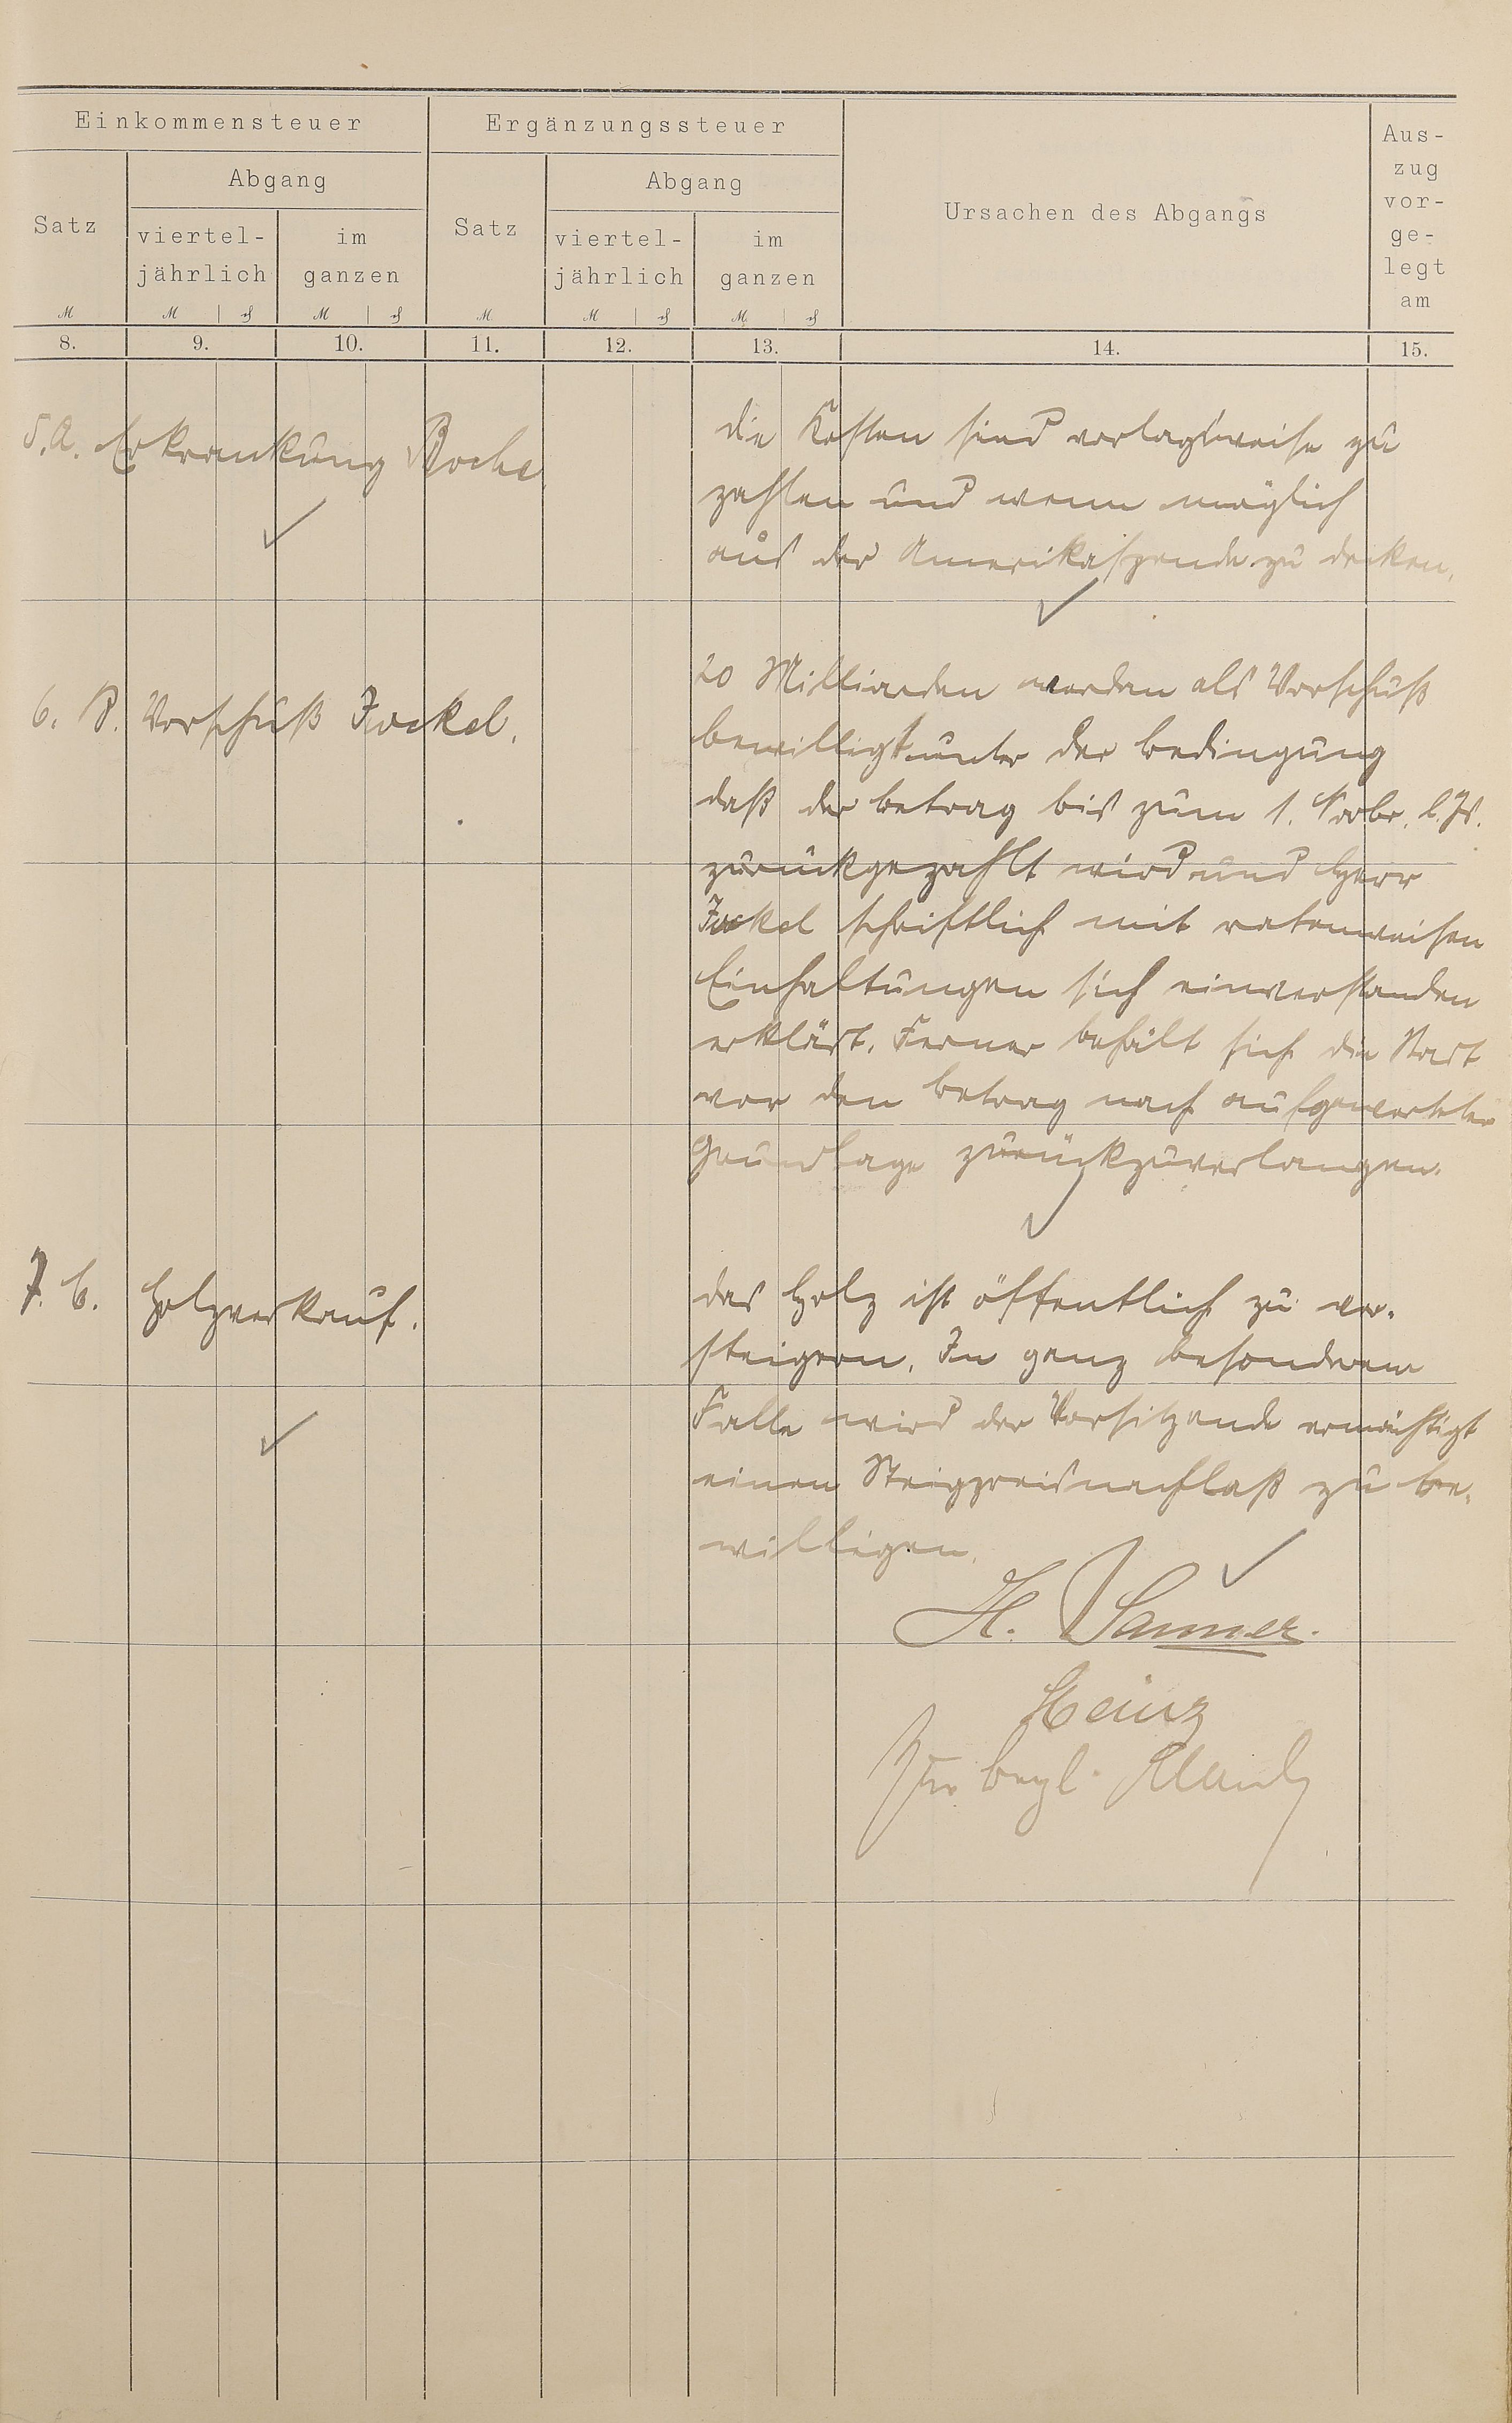 Einkommensteuer
Ergänzungssteuer
Ursachen des Abgangs
Aus-
zug
vor-
ge-
legt
am
Satz
Abgang
viertel-
jährlich
im
ganzen
Satz
Abgang
viertel-
jährlich
im
ganzen
M
M
M
M
M
M
8.
9.
10.
11.
12.
13.
14.
15.
5. A. Erkrankung Boche
die Kosten sind vorlagsweise zu
zahlen und wenn möglich
aus der Amerikaspende zu decken.
6. B. Vorschuß Jockel.
20 Milliarden werden als Vorschuß
bewilligt unter der Bedingung
daß der Betrag bis zum 1. Novbr. l. Js.
zurückgezahlt wird und Herr
Jockel schriftlich mit ratenweisen
Einhaltungen sich einverstanden
erklärt. Ferner behält sich die Stadt
vor den Betrag nach aufgewerteter
Grundlage zurückzuverlangen.
7. C. Holzverkauf.
das Holz ist öffentlich zu ver-
steigern. In ganz besonderem
Falle wird der Vorsitzende ermächtigt
einen Steigpreisnachlaß zu be-
willigen.
H. Sanner.
Heinz
Zur begl.